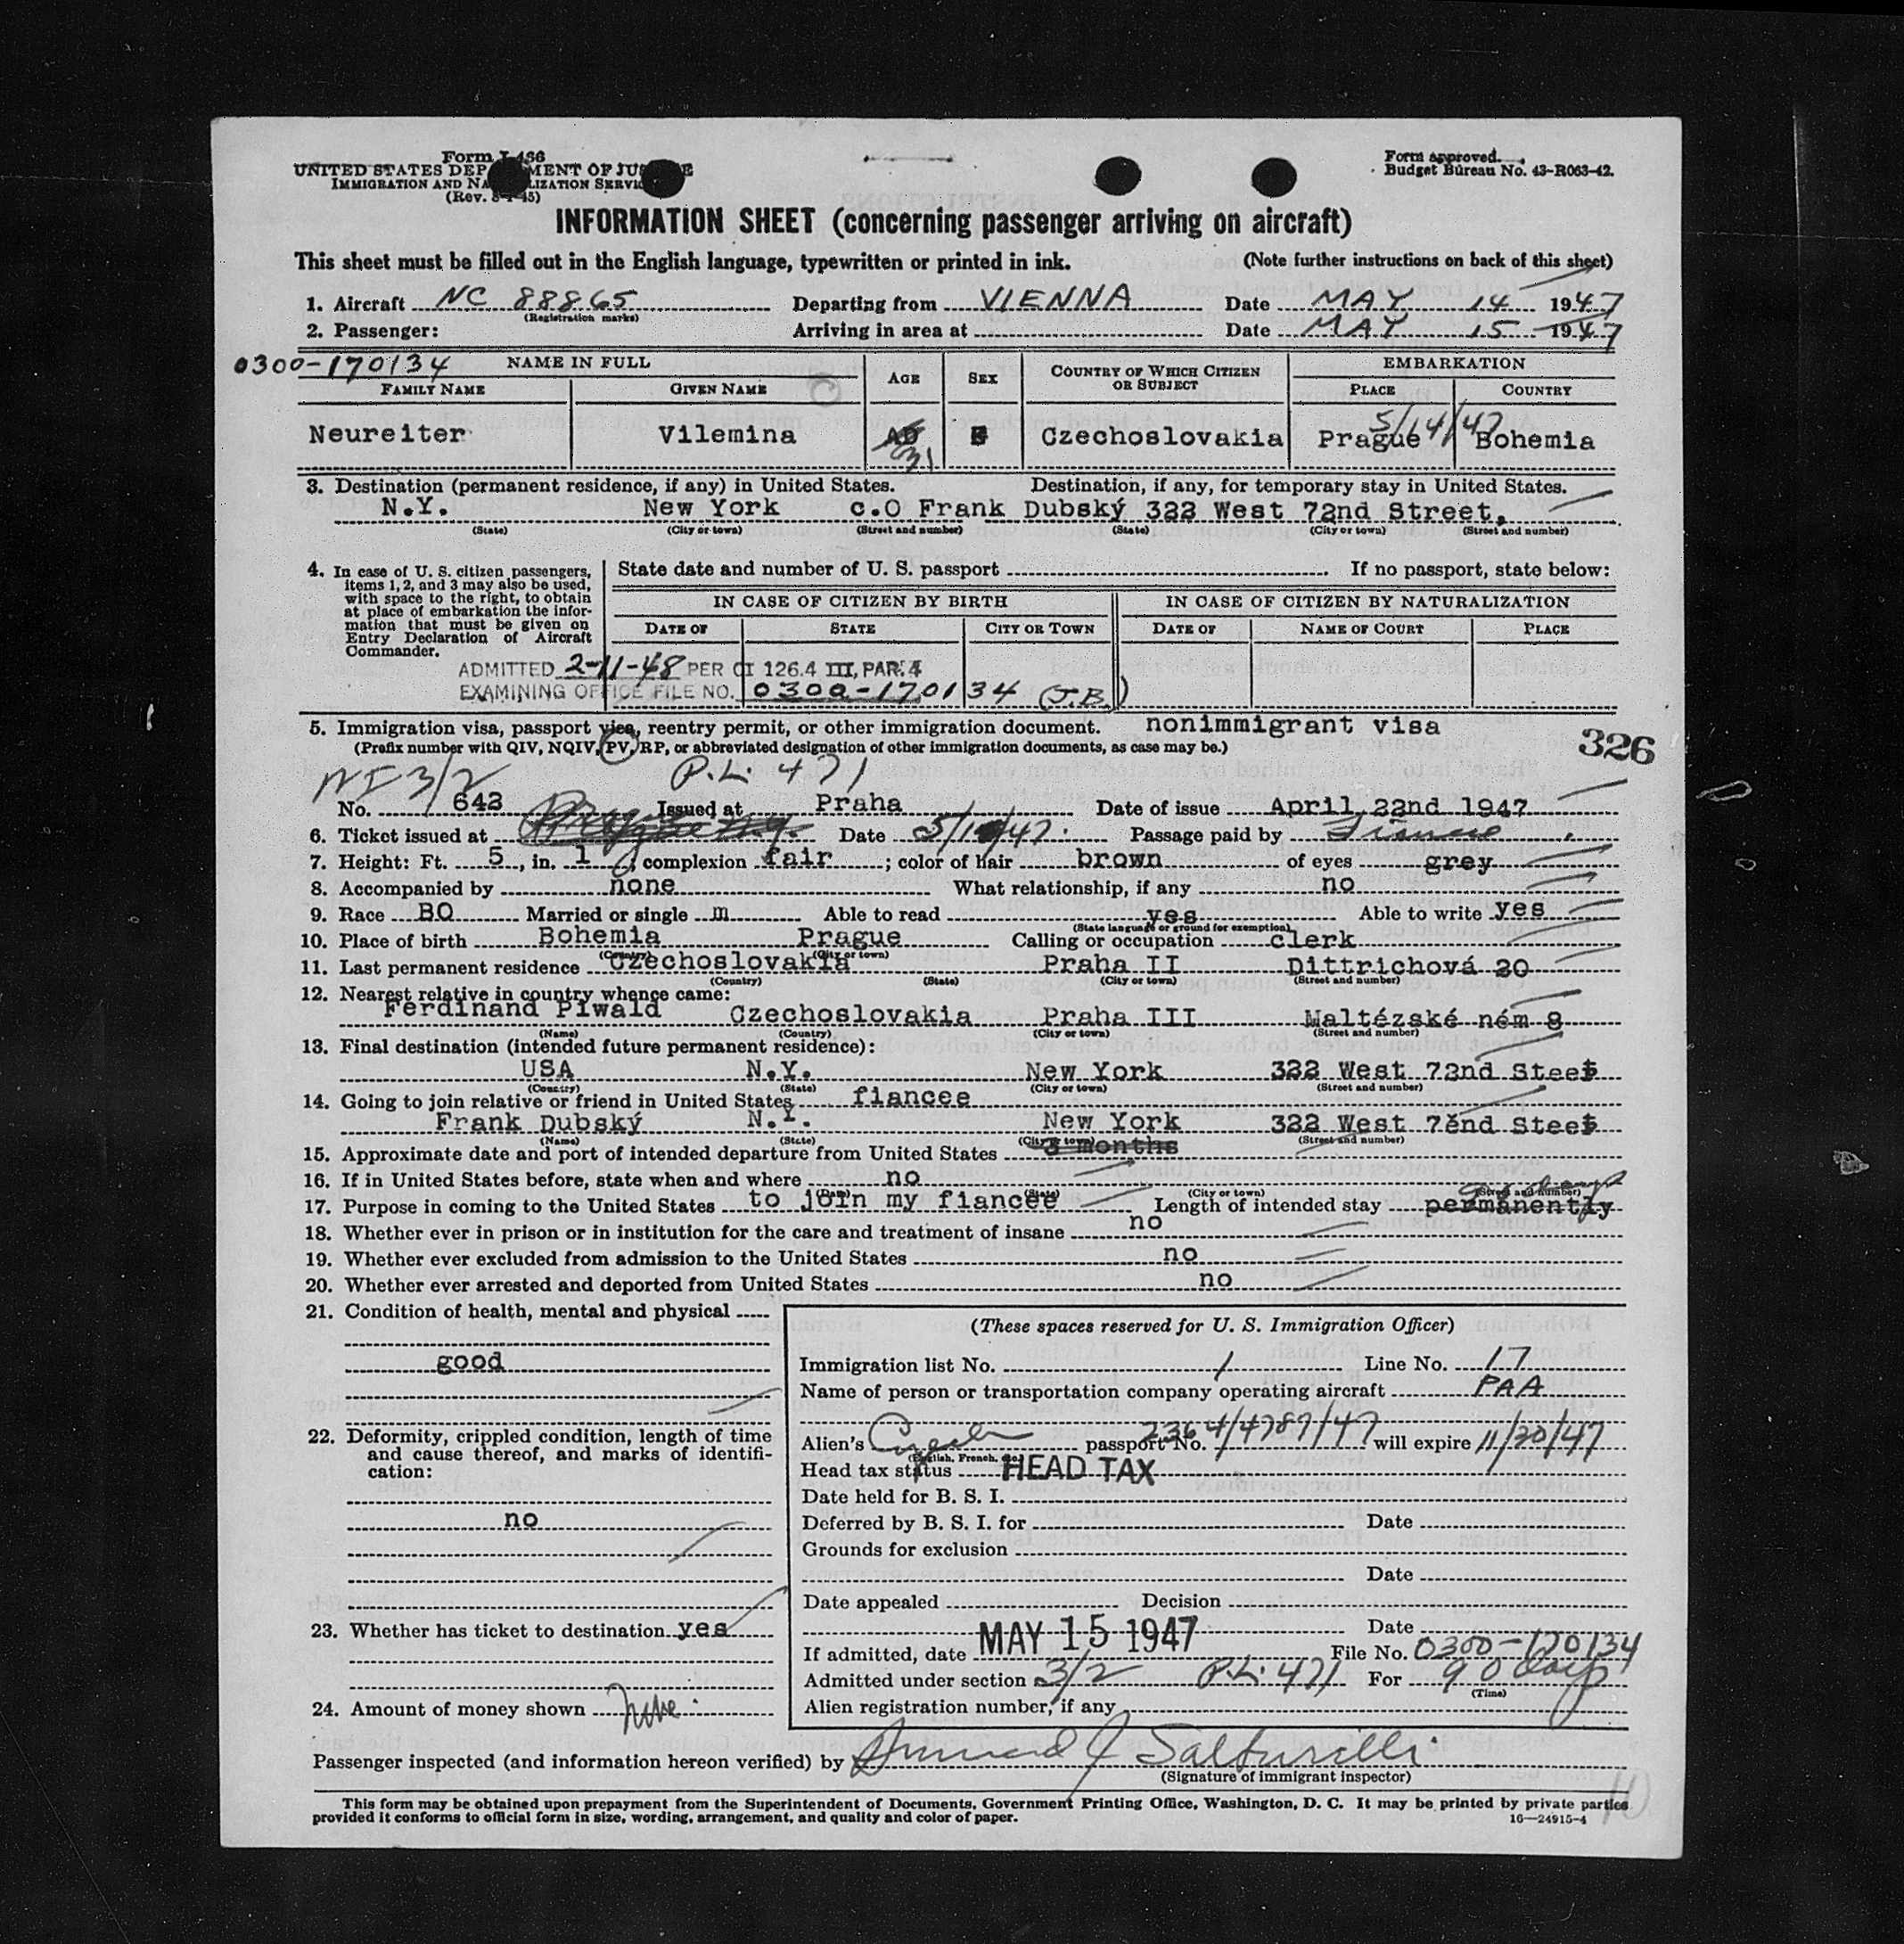 Form I-466
UNITED STATES DEPARTMENT OF JUSTICE
IMMIGRATION AND NATURALIZATION SERVICE
(Rev. 8-1-45)
Form approved.
Budget Bureau No. 43-R063-42.
INFORMATION SHEET (concerning passenger arriving on aircraft)
This sheet must be filled out in the English language, typewritten or printed in ink. (Note further instructions on back of this sheet)
1. Aircraft NC 88865 Departing from VIENNA Date MAY 14 1947
(Registration marks)
2. Passenger: Arriving in area at Date MAY 15 1947
0300-170134 NAME IN FULL AGE SEX COUNTRY OF WHICH CITIZEN OR SUBJECT EMBARKATION
FAMILY NAME GIVEN NAME PLACE COUNTRY
5/14/47
Neureiter Vilemina 31 Czechoslovakia Prague Bohemia
3. Destination (permanent residence, if any) in United States. Destination, if any, for temporary stay in United States.
N.Y. New York c.O Frank Dubský 322 West 72nd Street,
(State) (City or town) (Street and number) (State) (City or town) (Street and number)
4. In case of U. S. citizen passengers, items 1, 2, and 3 may also be used, with space to the right, to obtain at place of embarkation the information that must be given on Entry Declaration of Aircraft Commander.
State date and number of U. S. passport If no passport, state below:
IN CASE OF CITIZEN BY BIRTH IN CASE OF CITIZEN BY NATURALIZATION
DATE OF STATE CITY OR TOWN DATE OF NAME OF COURT PLACE
ADMITTED 2-11-48 PER CI 126.4 III, PAR. 4
EXAMINING OFFICE FILE NO. 0300-170134 (J.B.)
5. Immigration visa, passport visa, reentry permit, or other immigration document. nonimmigrant visa
(Prefix number with QIV, NQIV, PV, RP, or abbreviated designation of other immigration documents, as case may be.)
326
3/2 P.L. 471
No. 642 Issued at Praha Date of issue April 22nd 1947
6. Ticket issued at Date Passage paid by
7. Height: Ft. 5, in. 1, complexion fair; color of hair brown of eyes grey
8. Accompanied by none What relationship, if any no
9. Race BO Married or single m Able to read yes Able to write yes
(State language or ground for exemption)
10. Place of birth Bohemia Prague Calling or occupation clerk
(Country) (City or town)
11. Last permanent residence Czechoslovakia Praha II Dittrichová 20
(Country) (State) (City or town) (Street and number)
12. Nearest relative in country whence came:
Ferdinand Piwald Czechoslovakia Praha III Maltézské ném 8
(Name) (Country) (City or town) (Street and number)
13. Final destination (intended future permanent residence):
USA N.Y. New York 322 West 72nd Steet
(Country) (State) (City or town) (Street and number)
14. Going to join relative or friend in United States fiancee
Frank Dubský N.Y. New York 322 West 72nd Steet
(Name) (State) (City or town) (Street and number)
15. Approximate date and port of intended departure from United States 3 months
16. If in United States before, state when and where no
(Date) (State) (City or town) (Street and number)
17. Purpose in coming to the United States to join my fiancee Length of intended stay permanently
18. Whether ever in prison or in institution for the care and treatment of insane no
19. Whether ever excluded from admission to the United States no
20. Whether ever arrested and deported from United States no
21. Condition of health, mental and physical
good
22. Deformity, crippled condition, length of time and cause thereof, and marks of identification:
no
23. Whether has ticket to destination yes
24. Amount of money shown
(These spaces reserved for U. S. Immigration Officer)
Immigration list No. 1 Line No. 17
Name of person or transportation company operating aircraft PAA
Alien's Czech passport No. 2364/4787/47 will expire 11/20/47
(English, French, etc.)
Head tax status HEAD TAX
Date held for B. S. I.
Deferred by B. S. I. for Date
Grounds for exclusion
Date
Date appealed Decision
Date
If admitted, date MAY 15 1947 File No. 0300-170134
Admitted under section 3/2 P.L. 471 For 90 days
(Time)
Alien registration number, if any
Passenger inspected (and information hereon verified) by
(Signature of immigrant inspector)
This form may be obtained upon prepayment from the Superintendent of Documents, Government Printing Office, Washington, D. C. It may be printed by private parties
provided it conforms to official form in size, wording, arrangement, and quality and color of paper. 16—24915-4